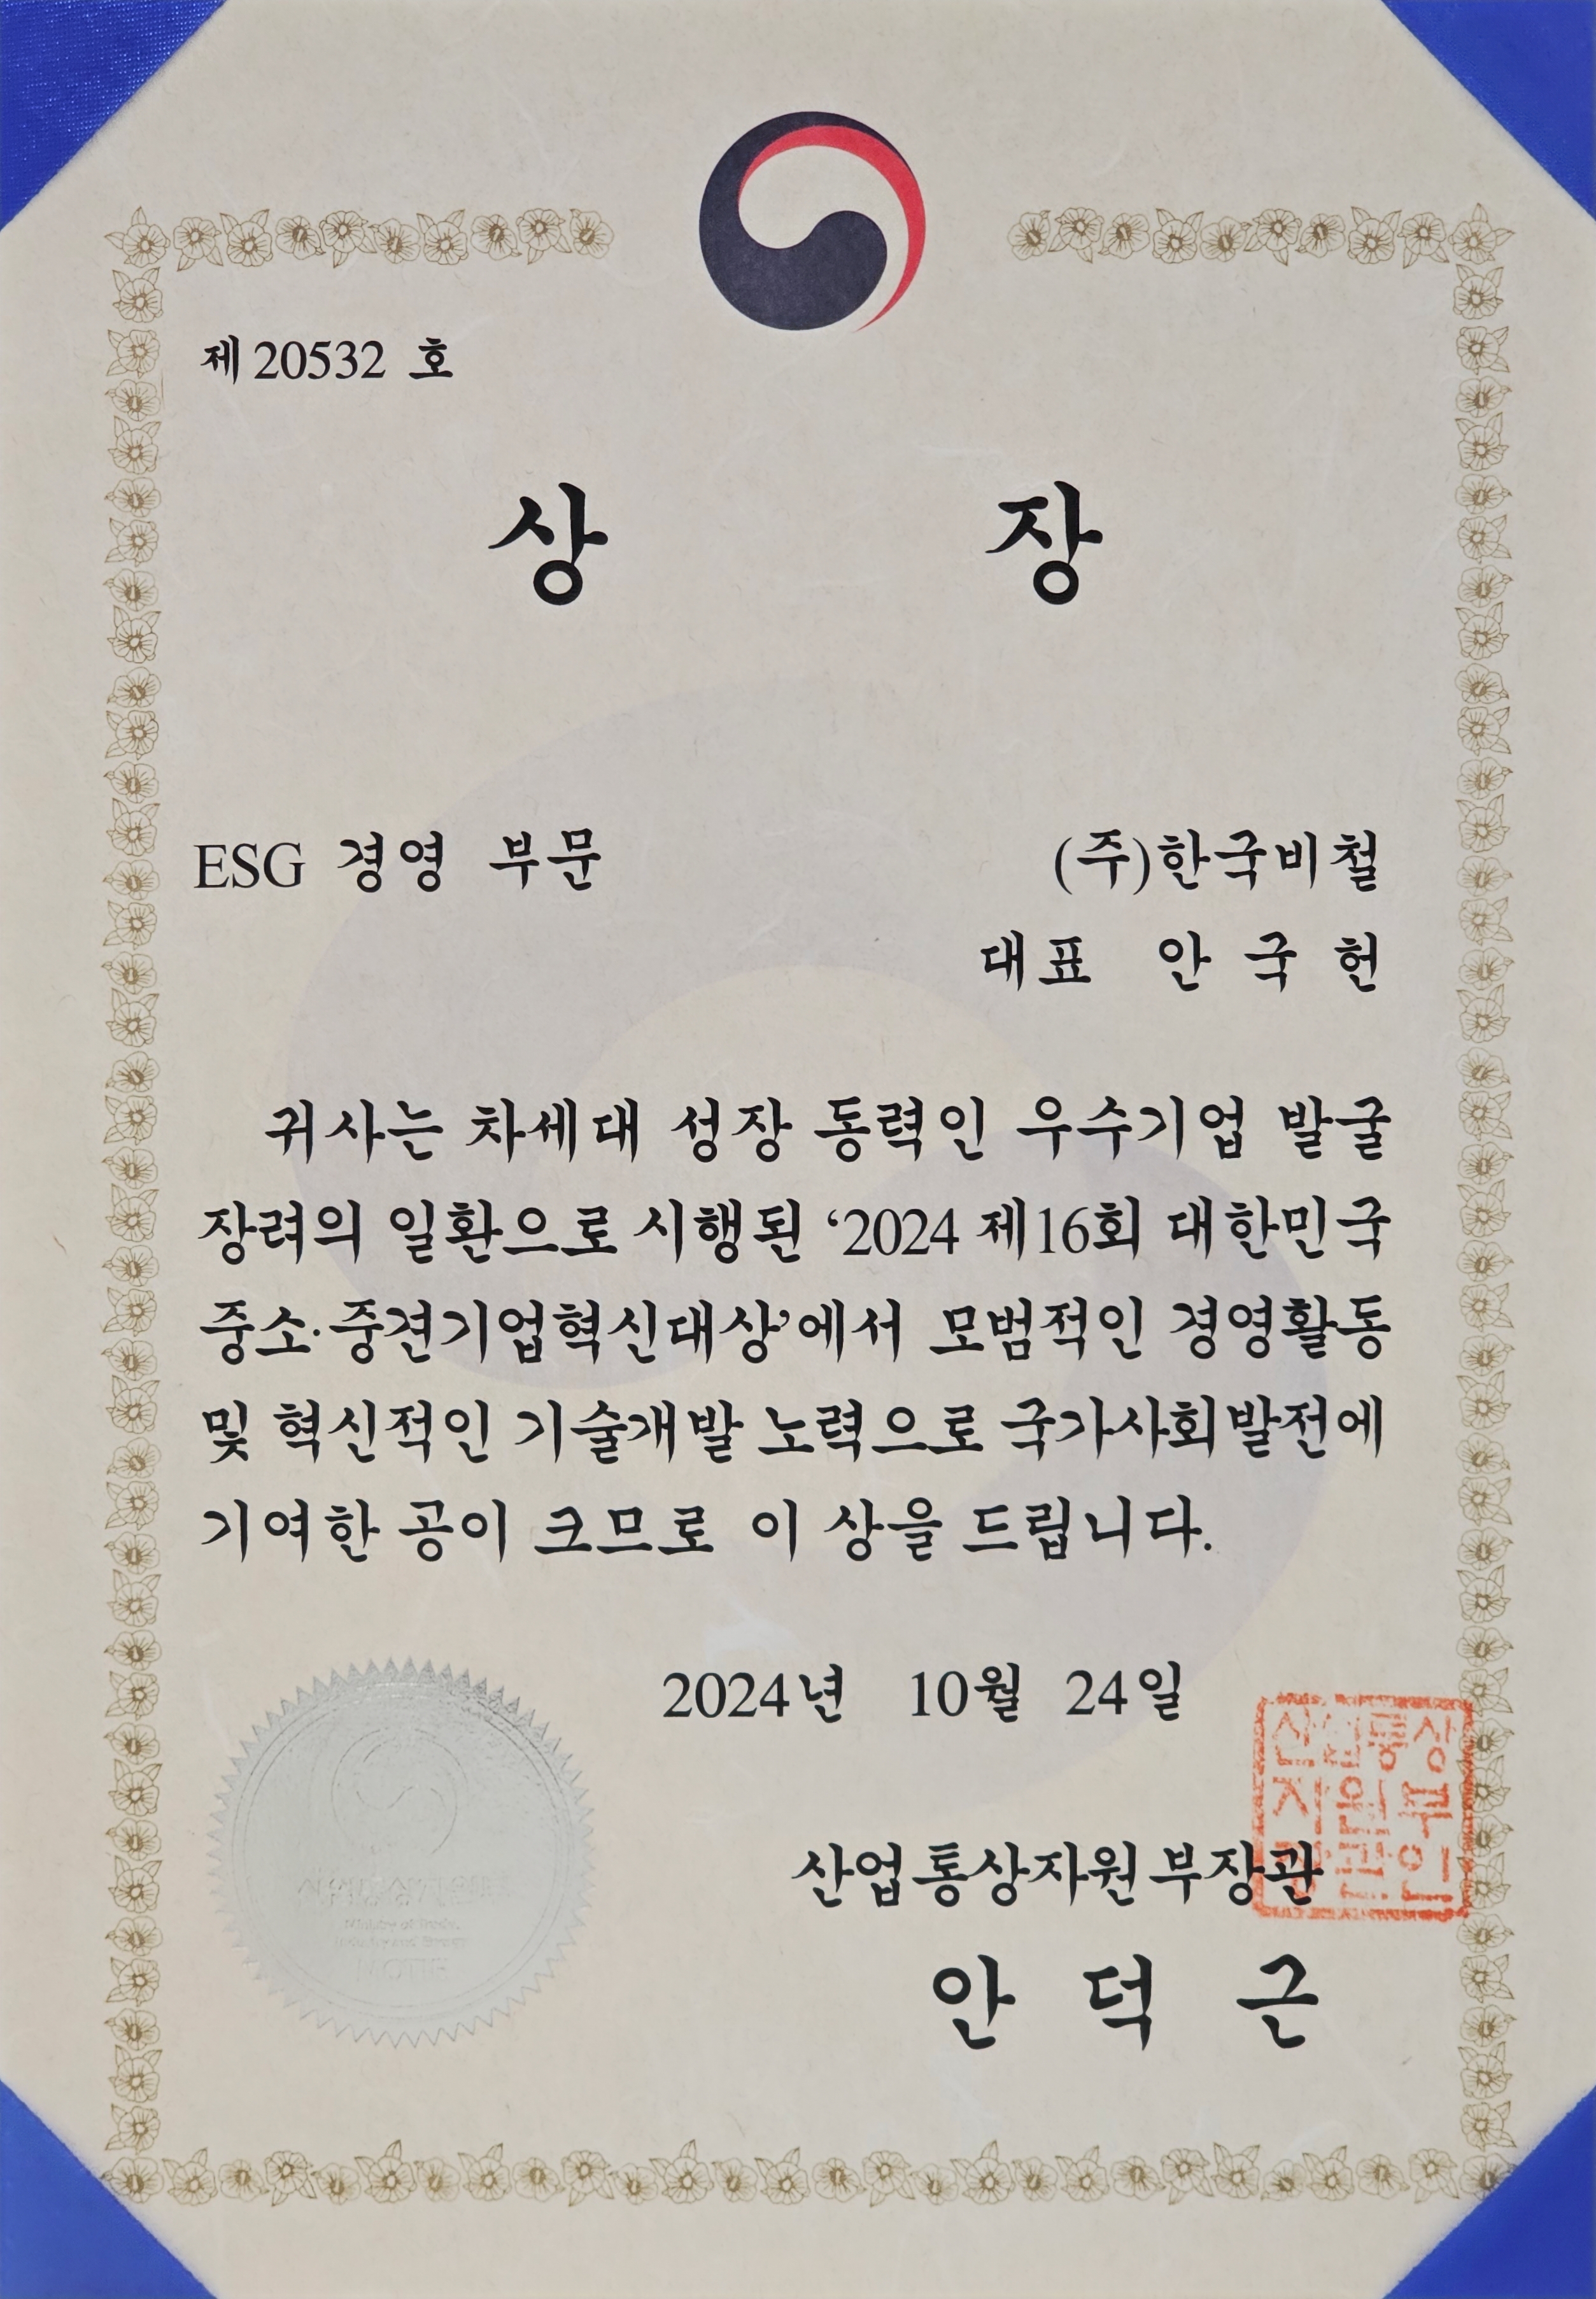 제 20532 호
상 장
ESG 경영 부문
(주)한국비철
대표 안 국 헌
귀사는 차세대 성장 동력인 우수기업 발굴
장려의 일환으로 시행된 ‘2024 제16회 대한민국
중소·중견기업혁신대상’에서 모범적인 경영활동
및 혁신적인 기술개발 노력으로 국가사회발전에
기여한 공이 크므로 이 상을 드립니다.
2024년 10월 24일
산업통상자원부장관
안 덕 근
산업통상
자원부
장관인